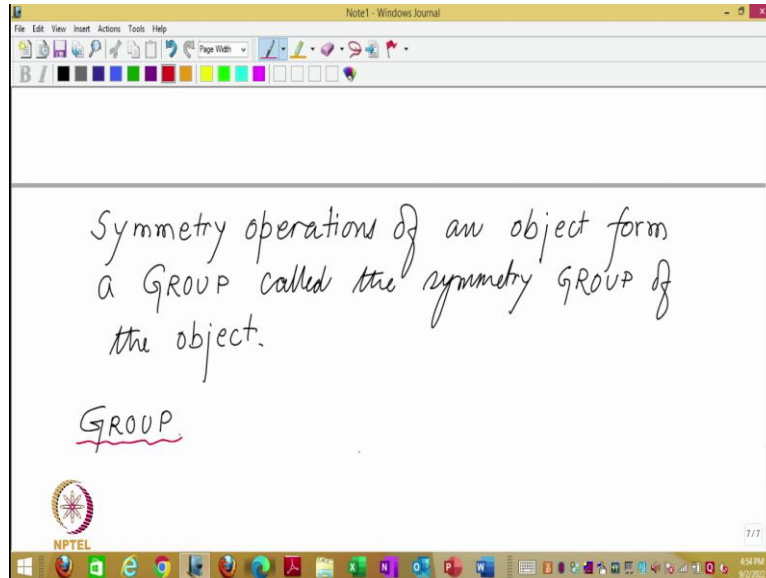 Note1 - Windows Journal
File Edit View Insert Actions Tools Help
Page Width
B I
Symmetry operations of an object form
a GROUP called the symmetry GROUP of
the object.
GROUP.
NPTEL
7/7
4:54 PM
9/2/2022